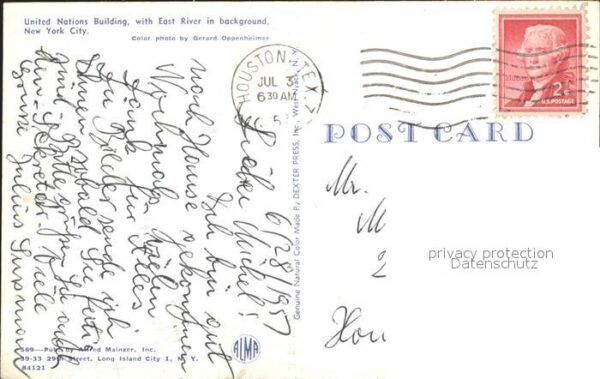 United Nations Building, with East River in background,
New York City.
Color photo by Gerard Oppenheimer
HOUSTON, TEX.
JUL 3
6 30 AM
2¢
U.S. POSTAGE
POST CARD
Genuine Natural Color Made By DEXTER PRESS, Inc., West Nyack, N.Y.
6/28/1957
Lieber Michel!
Ich bin gut
nach Hause gekommen
Nochmals vielen
Dank für Alles
Die Bilder sende ich
Ihnen sobald sie fertig
sind. Bitte grüßen Sie auch
Viele
Grüsse Julius
Mr.
M
2
Hou
privacy protection
Datenschutz
ALMA
569—Pub. by Alfred Mainzer, Inc.
39-33 29th Street, Long Island City 1, N. Y.
84121